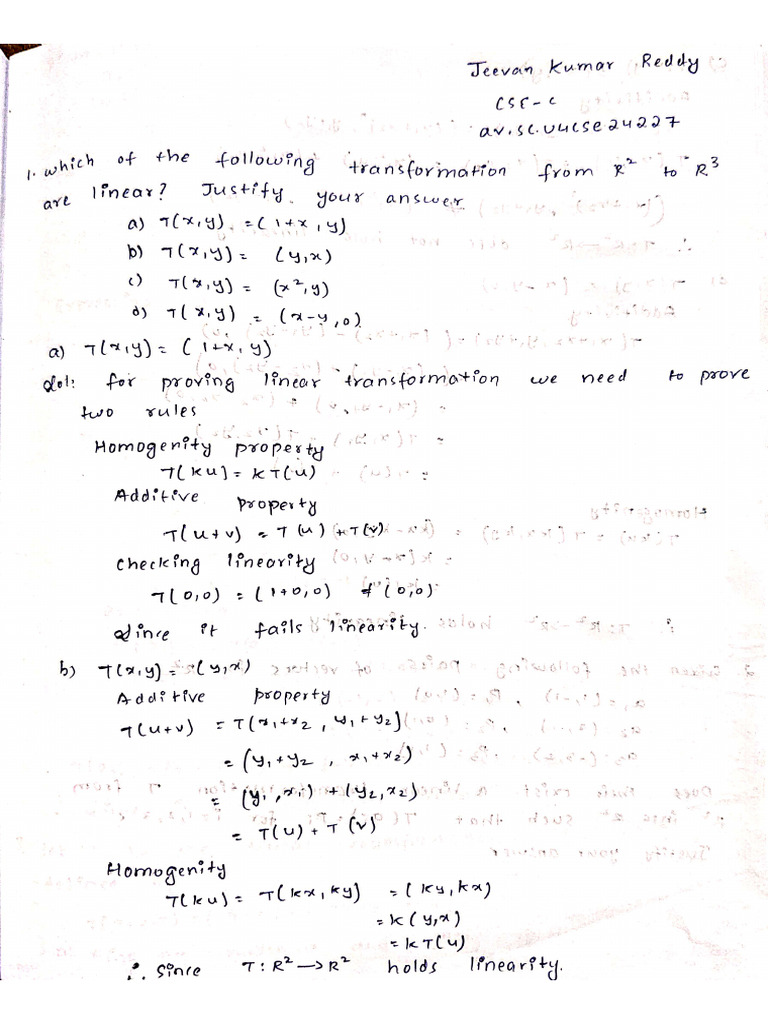 Jeevan Kumar Reddy
CSE-C
av.sc.u4cse24227
1. which of the following transformation from R² to R³
are linear? Justify your answer
a) T(x,y) = (1+x, y)
b) T(x,y) = (y,x)
c) T(x,y) = (x²,y)
d) T(x,y) = (x-y,0)
a) T(x,y) = (1+x, y)
Sol: for proving linear transformation we need to prove
two rules
Homogenity property
T(ku) = kT(u)
Additive property
T(u+v) = T(u) + T(v)
checking linearity
T(0,0) = (1+0,0) ≠ (0,0)
Since it fails linearity.
b) T(x,y) = (y,x)
Additive property
T(u+v) = T(x₁+x₂, y₁+y₂)
= (y₁+y₂, x₁+x₂)
= (y₁,x₁) + (y₂,x₂)
= T(u) + T(v)
Homogenity
T(ku) = T(kx,ky) = (ky,kx)
= k(y,x)
= kT(u)
∴ Since T:R²→R² holds linearity.